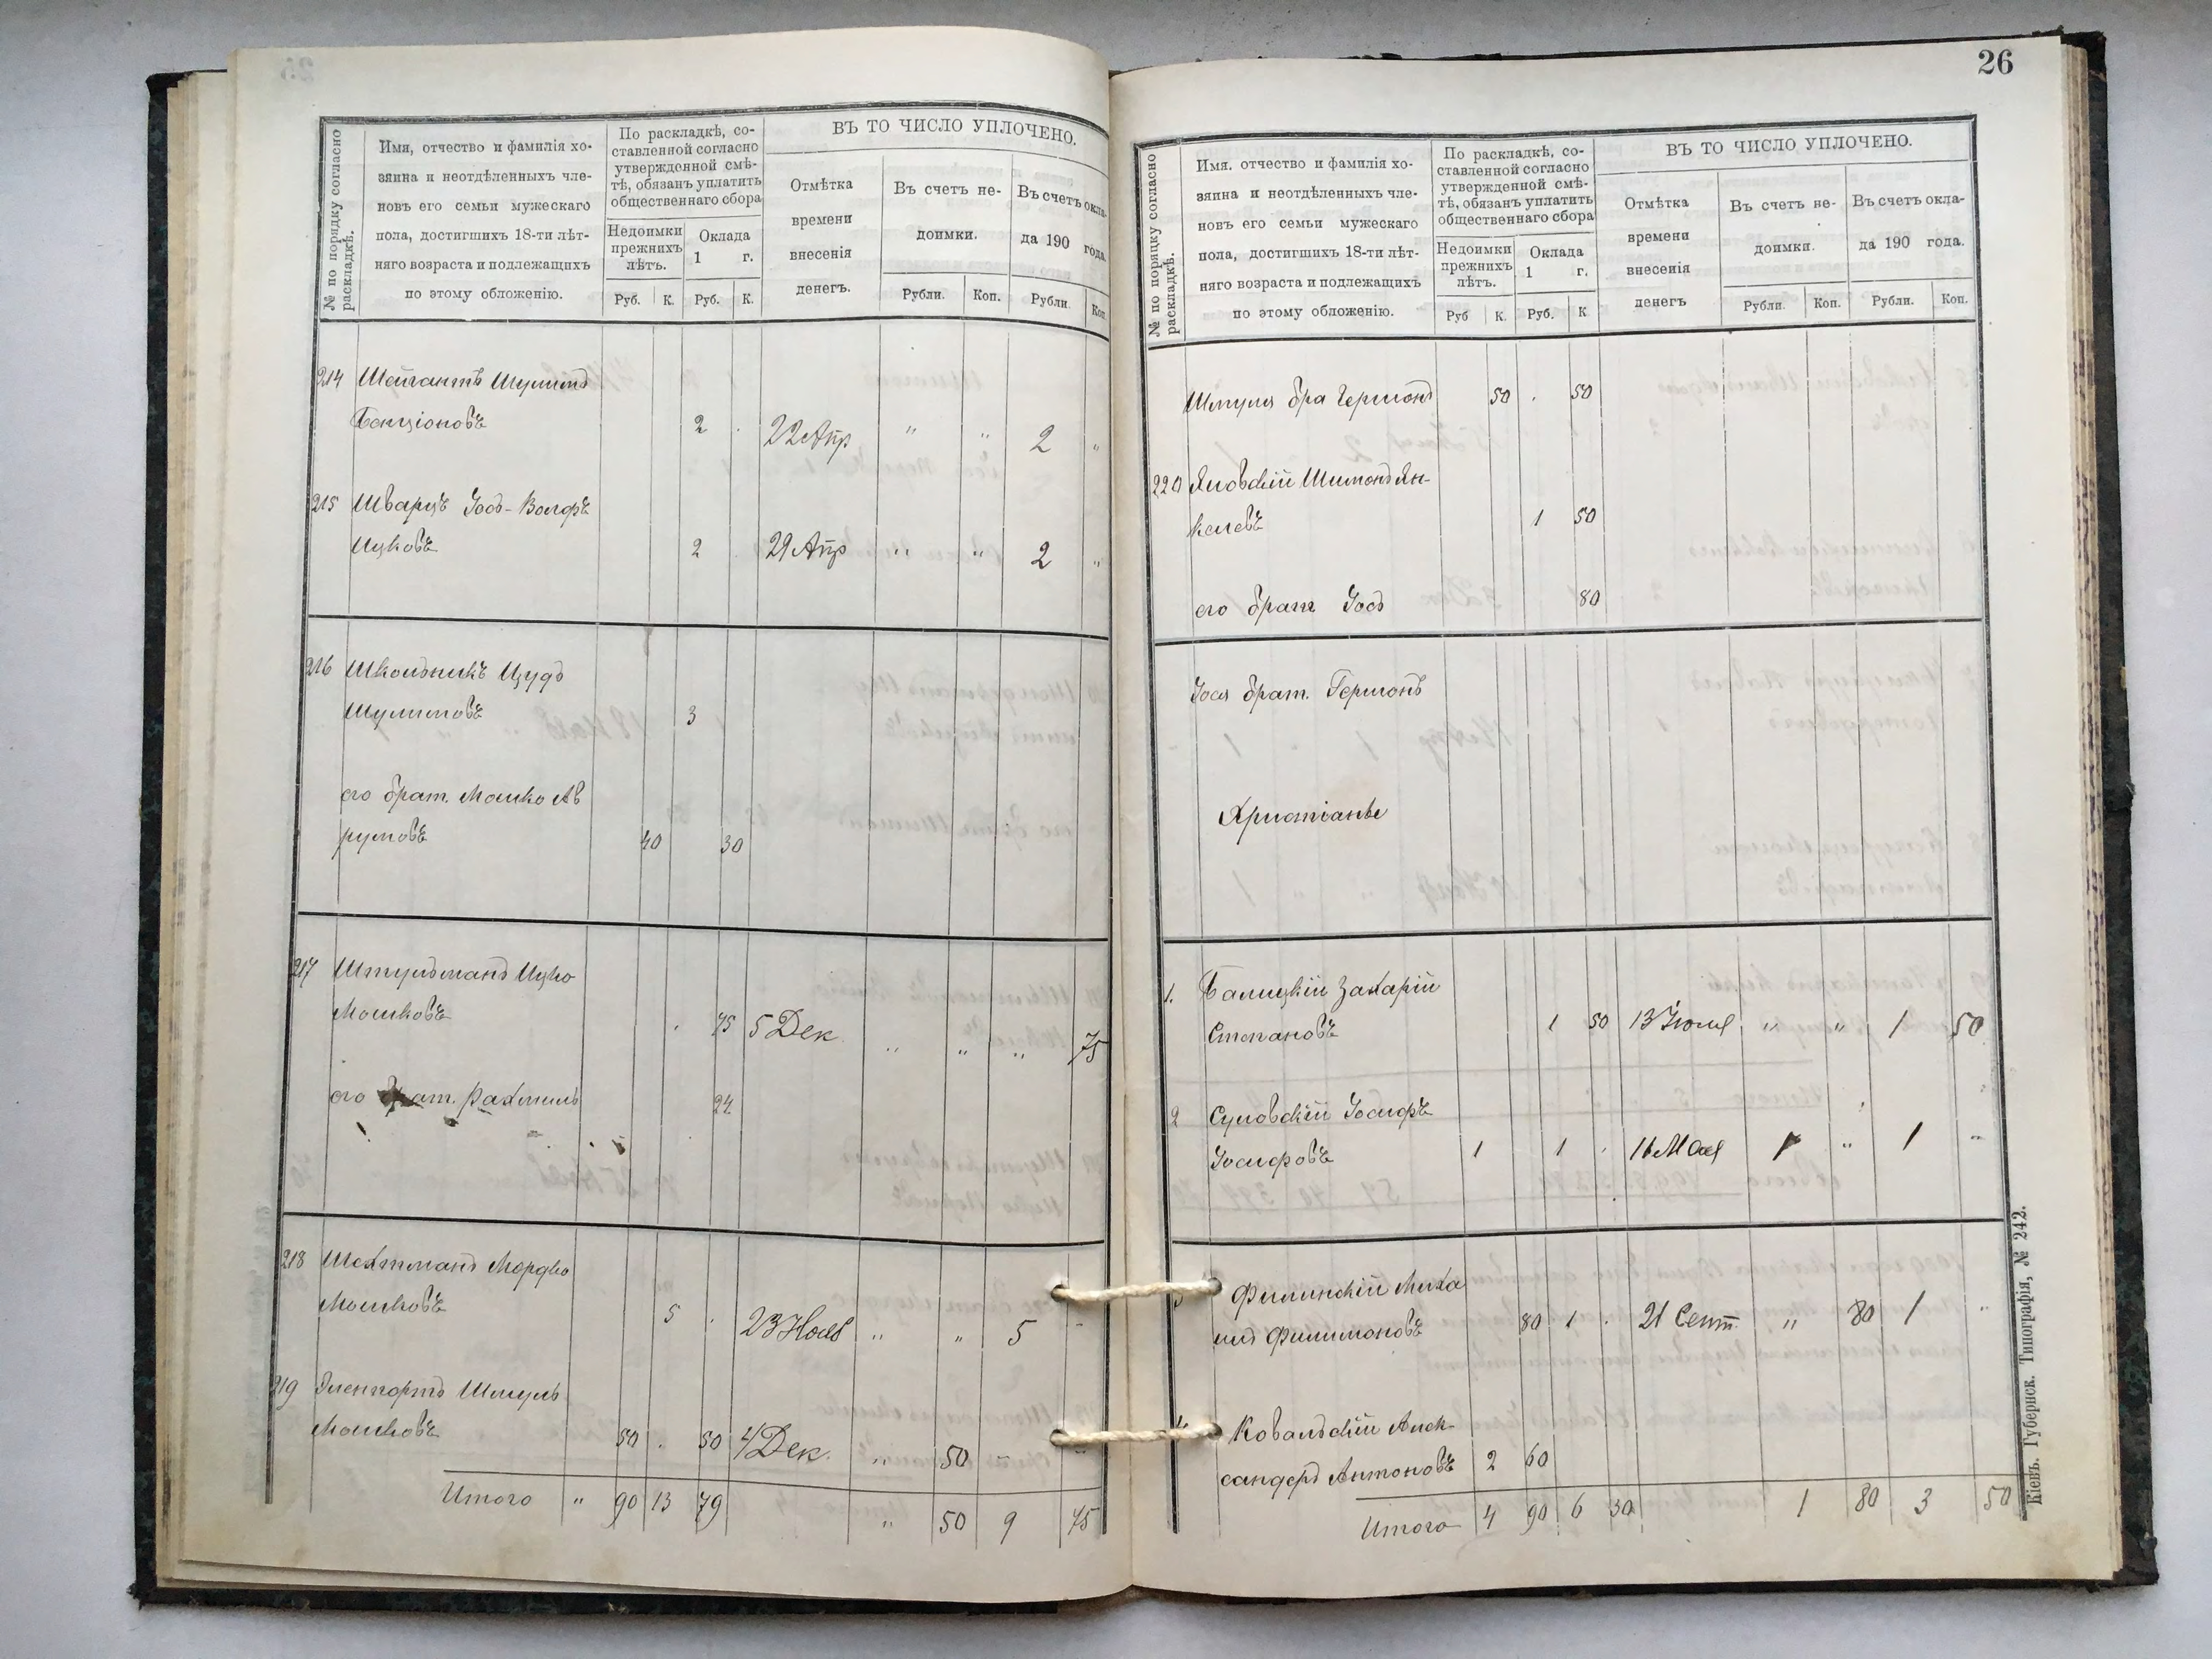 № по порядку согласно раскладкѣ.
Имя, отчество и фамилія хо-
зяина и неотдѣленныхъ чле-
новъ его семьи мужескаго
пола, достигшихъ 18-ти лѣт-
няго возраста и подлежащихъ
по этому обложенію.
По раскладкѣ, со-
ставленной согласно
утвержденной смѣ-
тѣ, обязанъ уплатить
общественнаго сбора
Недоимки
прежнихъ
лѣтъ.
Оклада
1 г.
Руб. К. Руб. К.
ВЪ ТО ЧИСЛО УПЛОЧЕНО.
Отмѣтка
времени
внесенія
денегъ.
Въ счетъ не-
доимки.
Рубли. Коп.
Въ счетъ окла-
да 190 года.
Рубли. Коп.
214 Шейгантъ Шулимъ
Бенціоновъ 2 . 22 Апр " " 2 "
215 Шварцъ Іосъ-Волфъ
Ицковъ 2 . 29 Апр " " 2 "
216 Школьникъ Цудъ
Шулимовъ 3
его брат. Мошко Ав
румовъ 40 30
217 Штульманъ Ицко
Мошковъ . 75 5 Дек. " " " 75
его брат. Рахмиль 24
218 Шехтманъ Мордко
Мошковъ 5 . 23 Нояб " " 5 "
219 Эленпортъ Шмуль
Мошковъ 50 . 50 4 Дек. " 50 " "
Итого " 90 13 79 " 50 9 75
26
№ по порядку согласно раскладкѣ.
Имя. отчество и фамилія хо-
зяина и неотдѣленныхъ чле-
новъ его семьи мужескаго
пола, достигшихъ 18-ти лѣт-
няго возраста и подлежащихъ
по этому обложенію.
По раскладкѣ, со-
ставленной согласно
утвержденной смѣ-
тѣ, обязанъ уплатить
общественнаго сбора
Недоимки
прежнихъ
лѣтъ.
Оклада
1 г.
Руб К. Руб. К
ВЪ ТО ЧИСЛО УПЛОЧЕНО.
Отмѣтка
времени
внесенія
денегъ
Въ счетъ не-
доимки.
Рубли. Коп.
Въ счетъ окла-
да 190 года.
Рубли. Коп.
Шмуля бра Гершонъ 50 . 50
220 Яновскій Шимонъ Ян-
келевъ 1 50
его братъ Іосъ 80
Іося брат. Гершонъ
Христіанъе
1. Балицкій Захарій
Степановъ 1 50 13 Іюля " " 1 50
2 Суловскій Іосифъ
Іосифовъ 1 1 . 16 Мая 1 " 1 "
Филинскій Миха
илъ Филимоновъ 80 1 . 21 Сент. " 80 1 "
Ковальскій Алек-
сандръ Антоновъ 2 60
Итого 4 90 6 30 1 80 3 50
Кіевъ. Губернск. Типографія, № 242.